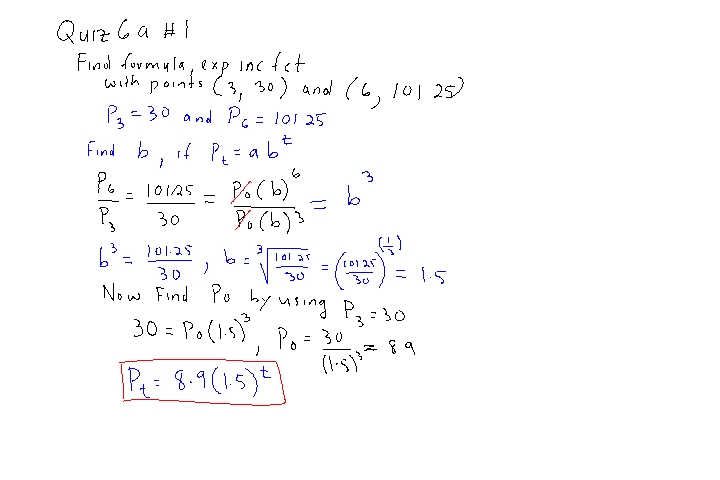 Quiz 6a #1
Find formula, exp inc fct
with points (3, 30) and (6, 101.25)
P₃ = 30 and P₆ = 101.25
Find b, if P_t = a b^t
P₆/P₃ = 101.25/30 = P₀(b)⁶/P₀(b)³ = b³
b³ = 101.25/30, b = ∛(101.25/30) = (101.25/30)^(1/3) = 1.5
Now Find P₀ by using P₃ = 30
30 = P₀(1.5)³, P₀ = 30/(1.5)³ = 8.9
P_t = 8.9(1.5)^t